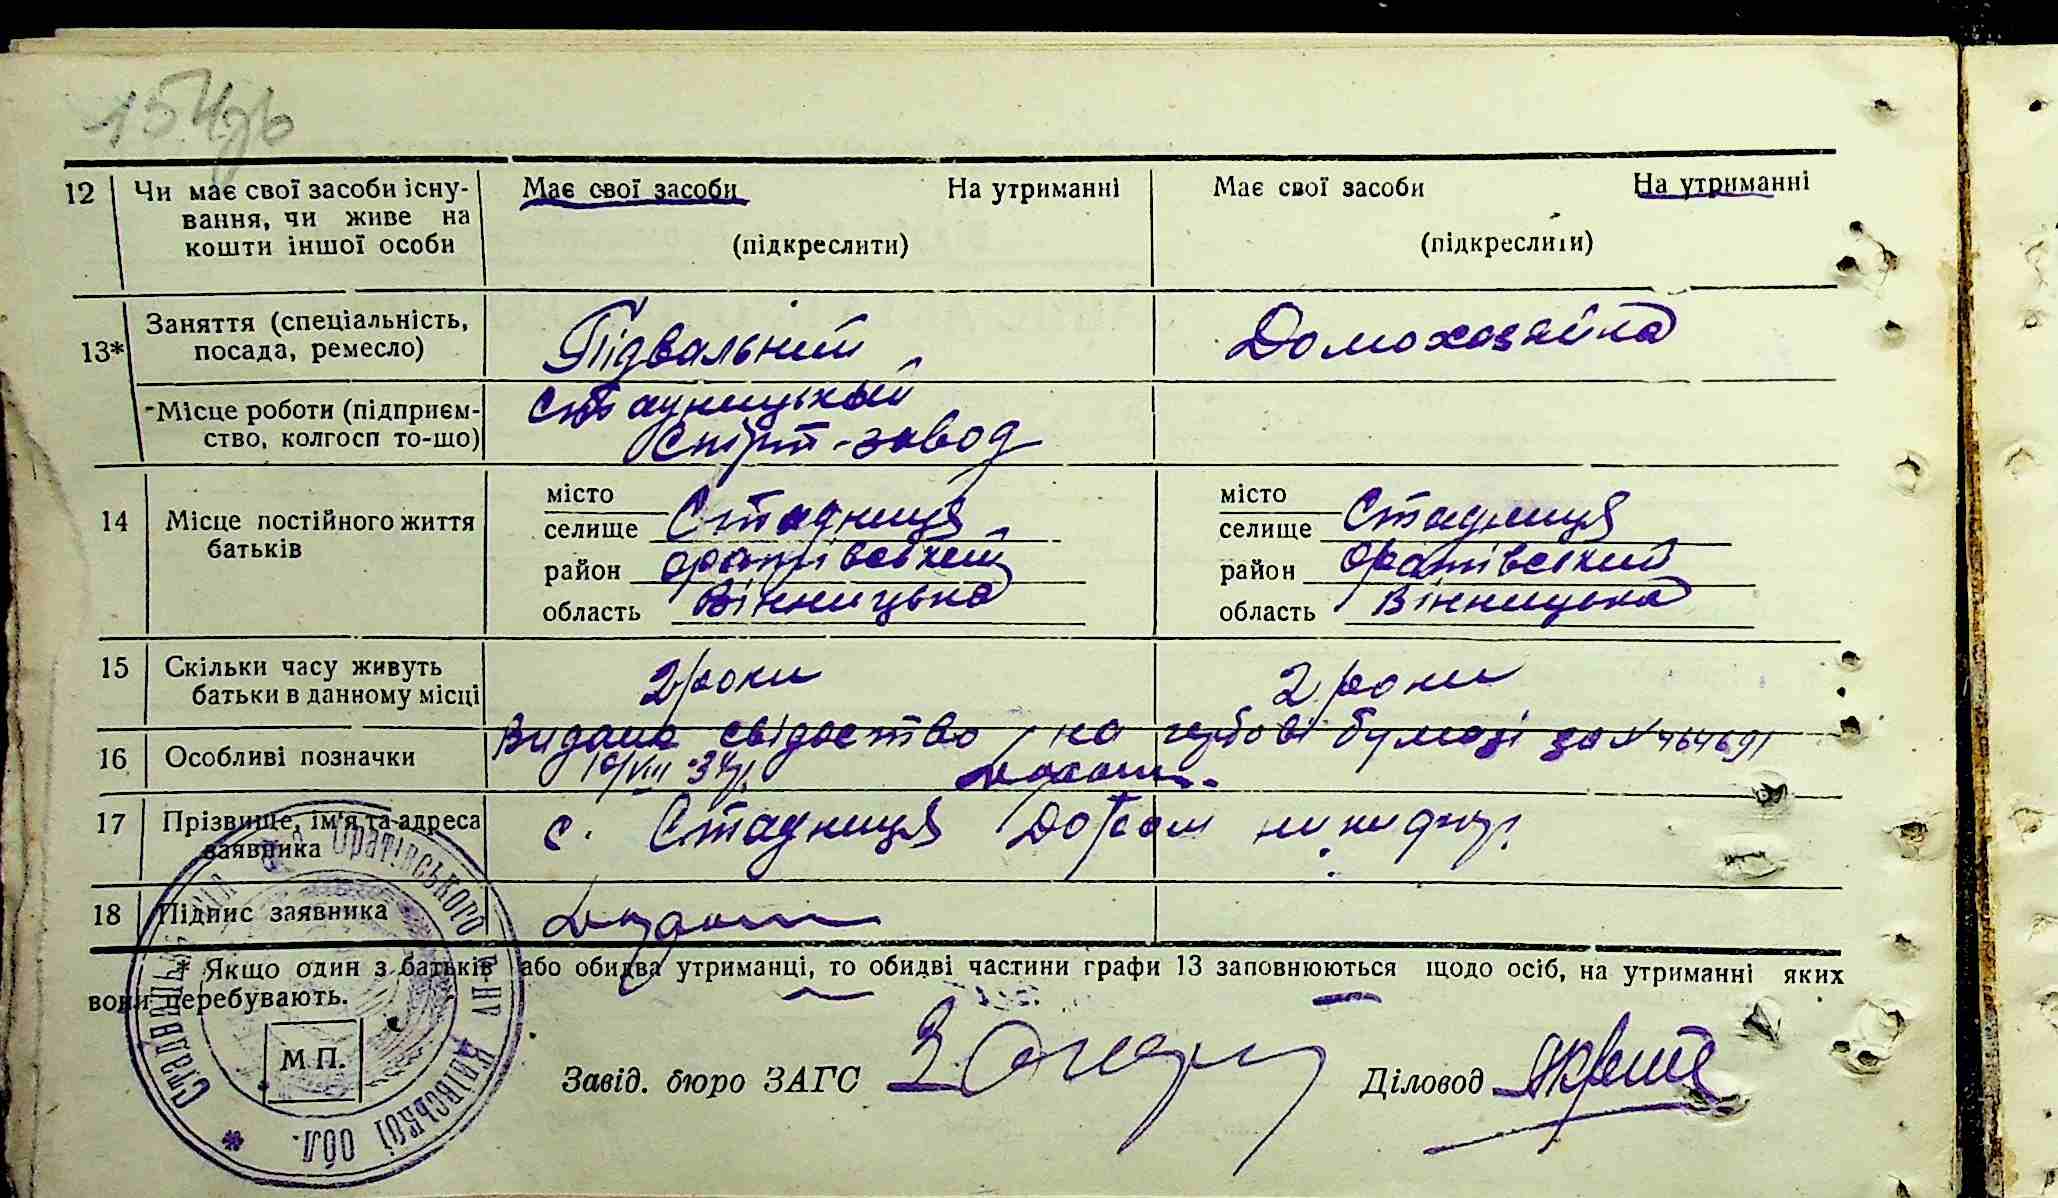 154зв
12 Чи має свої засоби існу- Має свої засоби На утриманні Має свої засоби На утриманні
вання, чи живе на
кошти іншої особи (підкреслити) (підкреслити)
13* Заняття (спеціальність, Підвальний Домохозяйка
посада, ремесло)
Місце роботи (підприєм- Стадницький
ство, колгосп то-що) Спірт-завод
14 Місце постійного життя місто місто
батьків селище Стадниця селище Стадниця
район Оратівський район Оратівський
область Вінницька область Вінницька
15 Скільки часу живуть 2 роки 2 роки
батьки в данному місці
16 Особливі позначки Видано свідоство на гербові бумазі за №464691
19/VIII-37р.
17 Прізвище, ім'я та адреса с. Стадниця
заявника
18 Підпис заявника
* Якщо один з батьків або обидва утриманці, то обидві частини графи 13 заповнюються щодо осіб, на утриманні яких
вони перебувають.
М П.
Завід. бюро ЗАГС Діловод
Оратівського р-ну Київської обл.